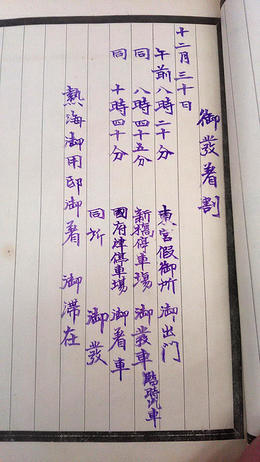 御發著割
十二月三十日
午前八時二十分 東宮假御所 御出門
同 八時四十五分 新橋停車場 御發車 臨時汽車
同 十時四十分 國府津停車場 御著車
同所 御發
熱海御用邸御著 御滞在